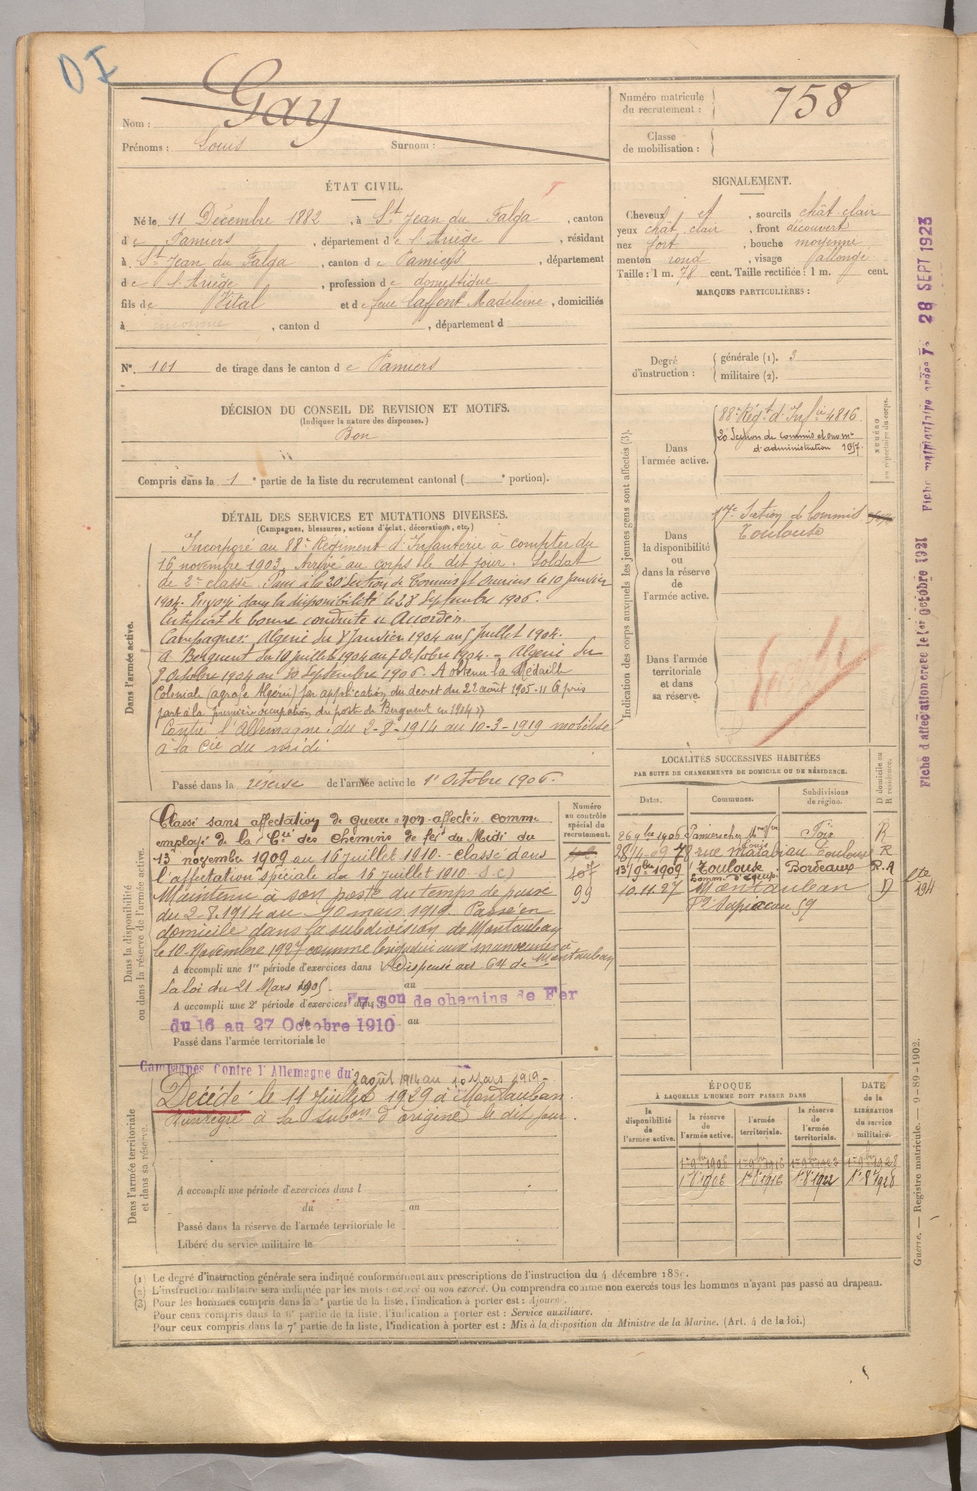 OI
Nom : Gay
Prénoms : Louis Surnom :
Numéro matricule du recrutement : 758
Classe de mobilisation :
ÉTAT CIVIL.
Né le 11 Décembre 1882, à St Jean du Falga, canton
de Pamiers, département de l'Ariège, résidant
à St Jean du Falga, canton de Pamiers, département
de l'Ariège, profession de domestique
fils de Vital et de feue Laffont Madeleine, domiciliés
à , canton d , département d
N° 101 de tirage dans le canton de Pamiers
SIGNALEMENT.
Cheveux et , sourcils chât clair
yeux chât clair, front découvert
nez fort, bouche moyenne
menton rond, visage allongé
Taille : 1 m. 78 cent. Taille rectifiée : 1 m. cent.
MARQUES PARTICULIÈRES :
Degré d'instruction : générale (1). 3
militaire (2).
DÉCISION DU CONSEIL DE REVISION ET MOTIFS.
(Indiquer la nature des dispenses.)
Bon
Compris dans la 1e partie de la liste du recrutement cantonal ( e portion).
DÉTAIL DES SERVICES ET MUTATIONS DIVERSES.
(Campagnes, blessures, actions d'éclat, décorations, etc.)
Dans l'armée active.
Incorporé au 88e Régiment d'Infanterie à compter du
16 novembre 1903. Arrivé au corps le dit jour. Soldat
de 2e classe. Passé à la 20 Section de Commis et Ouvriers le 10 Janvier
1904. Envoyé dans la disponibilité le 28 Septembre 1906.
Certificat de bonne conduite "Accordé".
Campagnes: Algérie du 8 Janvier 1904 au 9 Juillet 1904.
à Berguent du 10 juillet 1904 au 7 Octobre 1904. - Algérie du
8 Octobre 1904 au 30 Septembre 1906. A obtenu la Médaille
Coloniale (agrafe Algérie) par application du décret du 22 août 1905 - "A pris
part à la première occupation du poste de Berguent en 1904"
Contre l'Allemagne, du 2-8-1914 au 10-3-1919 mobilisé
à la Cie du midi
Passé dans la réserve de l'armée active le 1er Octobre 1906.
Indication des corps auxquels les jeunes gens sont affectés (3).
NUMÉRO au répertoire du corps.
Dans l'armée active.
88e Régt d'Infie 4816
20 Section de Commis et ouvrs d'administration 1057
Dans la disponibilité ou dans la réserve de l'armée active.
17e Section de Commis
Toulouse
Dans l'armée territoriale et dans sa réserve.
Dans la disponibilité ou dans la réserve de l'armée active.
Numéro au contrôle spécial du recrutement.
407
99
Classé sans affectation de guerre "non-affecté" comme
employé de la Cie des chemins de fer du Midi du
13 novembre 1909 au 16 juillet 1910 - classé dans
l'affectation spéciale du 16 juillet 1910 (S.C.)
Maintenu à son poste du temps de paix
du 2.8.1914 au 10 mars 1919. Passé en
domicile dans la subdivision de Montauban
le 10 Novembre 1927 comme brigadier aux manœuvres à Montauban
A accompli une 1re période d'exercices dans Dispensé art 64 de
la loi du 21 Mars 1905. au
A accompli une 2e période d'exercices dans son de chemins de Fer
du 16 au 27 Octobre 1910 au
Passé dans l'armée territoriale le
Dans l'armée territoriale et dans sa réserve.
Campagnes Contre l'Allemagne du 2 août 1914 au 10 Mars 1919 -
Décédé le 11 Juillet 1929 à Montauban.
Réintégré à sa subon d'origine le dit jour.
A accompli une période d'exercices dans l
du au
Passé dans la réserve de l'armée territoriale le
Libéré du service militaire le
LOCALITÉS SUCCESSIVES HABITÉES
PAR SUITE DE CHANGEMENTS DE DOMICILE OU DE RÉSIDENCE.
Dates. Communes. Subdivisions de région. D domicile ou R résidence.
26 9bre 1906 Pamiers Foix R
28/4-09 78 rue Matabiau Toulouse R
13/9bre 1909 Toulouse Bordeaux R.A
10.11.27 Montauban D
Fg Sapiacou 59
ÉPOQUE
À LAQUELLE L'HOMME DOIT PASSER DANS
la disponibilité de l'armée active. la réserve de l'armée active. l'armée territoriale. la réserve de l'armée territoriale. DATE de la LIBÉRATION du service militaire.
1er 9bre 1906 1er 9bre 1916 1er 9bre 1922 1er 9bre 1928
1er 8bre 1906 1er 8bre 1916 1er 8bre 1922 1er 8bre 1928
Fiche d'affectation créée le 1er Octobre 1921 Fiche matriculaire créée le 28 SEPT 1923
Guerre. — Registre matricule. — 9-89-1902.
(1) Le degré d'instruction générale sera indiqué conformément aux prescriptions de l'instruction du 4 décembre 1889.
(2) L'instruction militaire sera indiquée par les mots : exercé ou non exercé. On comprendra comme non exercés tous les hommes n'ayant pas passé au drapeau.
(3) Pour les hommes compris dans la 5e partie de la liste, l'indication à porter est : Ajourné.
Pour ceux compris dans la 6e partie de la liste, l'indication à porter est : Service auxiliaire.
Pour ceux compris dans la 7e partie de la liste, l'indication à porter est : Mis à la disposition du Ministre de la Marine. (Art. 4 de la loi.)